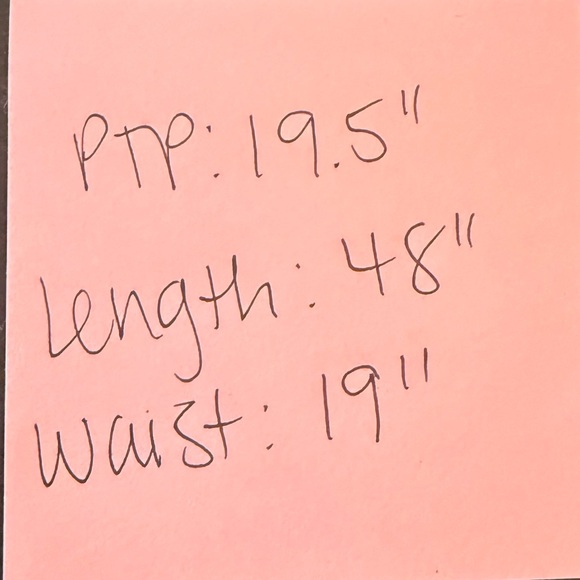 PTP: 19.5"
Length: 48"
Waist: 19"